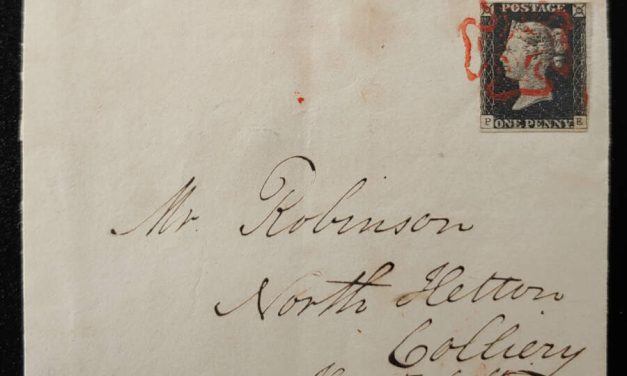 POSTAGE
P ONE PENNY. E
Mr. Robinson
North Hetton
Colliery